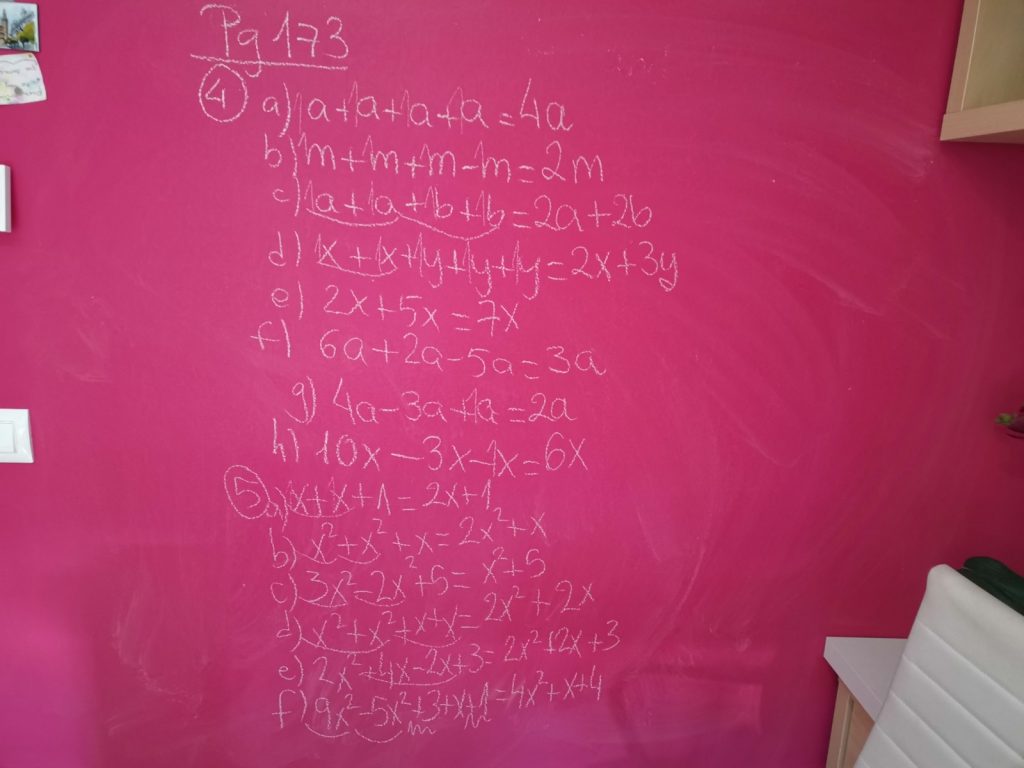 Pg 173
④ a) 1a+1a+1a+1a=4a
b) 1m+1m+1m-1m=2m
c) 1a+1a+1b+1b=2a+2b
d) 1x+1x+1y+1y+1y=2x+3y
e) 2x+5x=7x
f) 6a+2a-5a=3a
g) 4a-3a+1a=2a
h) 10x-3x-1x=6x
⑤ a) x+x+1=2x+1
b) x²+x²+x=2x²+x
c) 3x²-2x²+5=x²+5
d) x²+x²+x+x=2x²+2x
e) 2x²+4x-2x+3=2x²+2x+3
f) 9x²-5x²+3+x+1=4x²+x+4